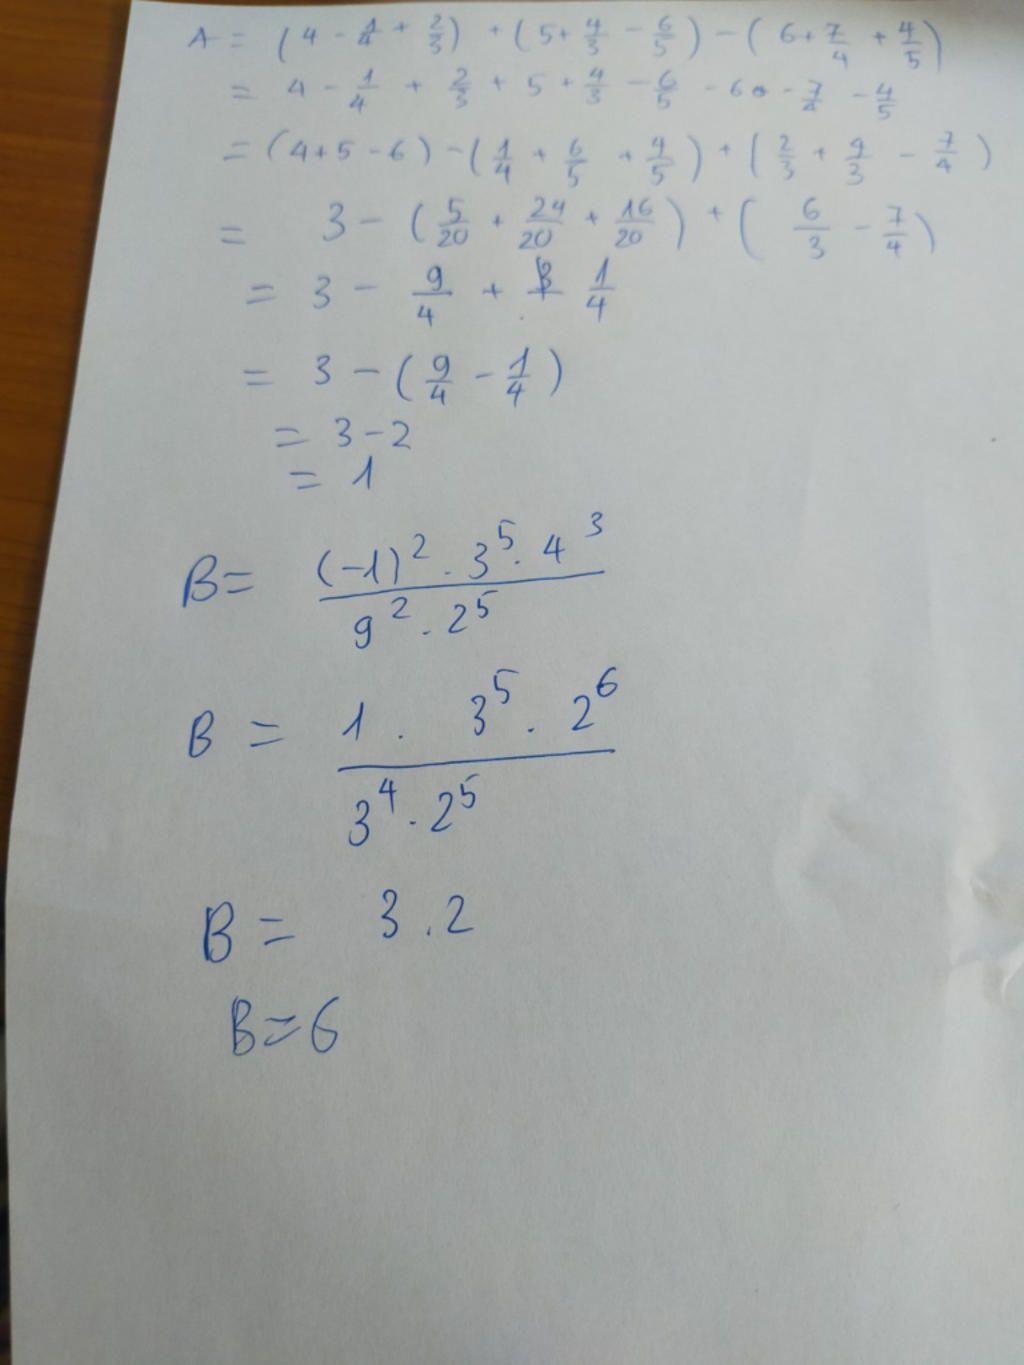 A = (4 - 1/4 + 2/3) + (5 + 4/3 - 6/5) - (6 + 7/4 + 4/5)
= 4 - 1/4 + 2/3 + 5 + 4/3 - 6/5 - 6 - 7/4 - 4/5
= (4 + 5 - 6) - (1/4 + 6/5 + 4/5) + (2/3 + 4/3 - 7/4)
= 3 - (5/20 + 24/20 + 16/20) + (6/3 - 7/4)
= 3 - 9/4 + 1/4
= 3 - (9/4 - 1/4)
= 3 - 2
= 1
B = (-1)² . 3⁵ . 4³ / 9² . 2⁵
B = 1 . 3⁵ . 2⁶ / 3⁴ . 2⁵
B = 3 . 2
B = 6